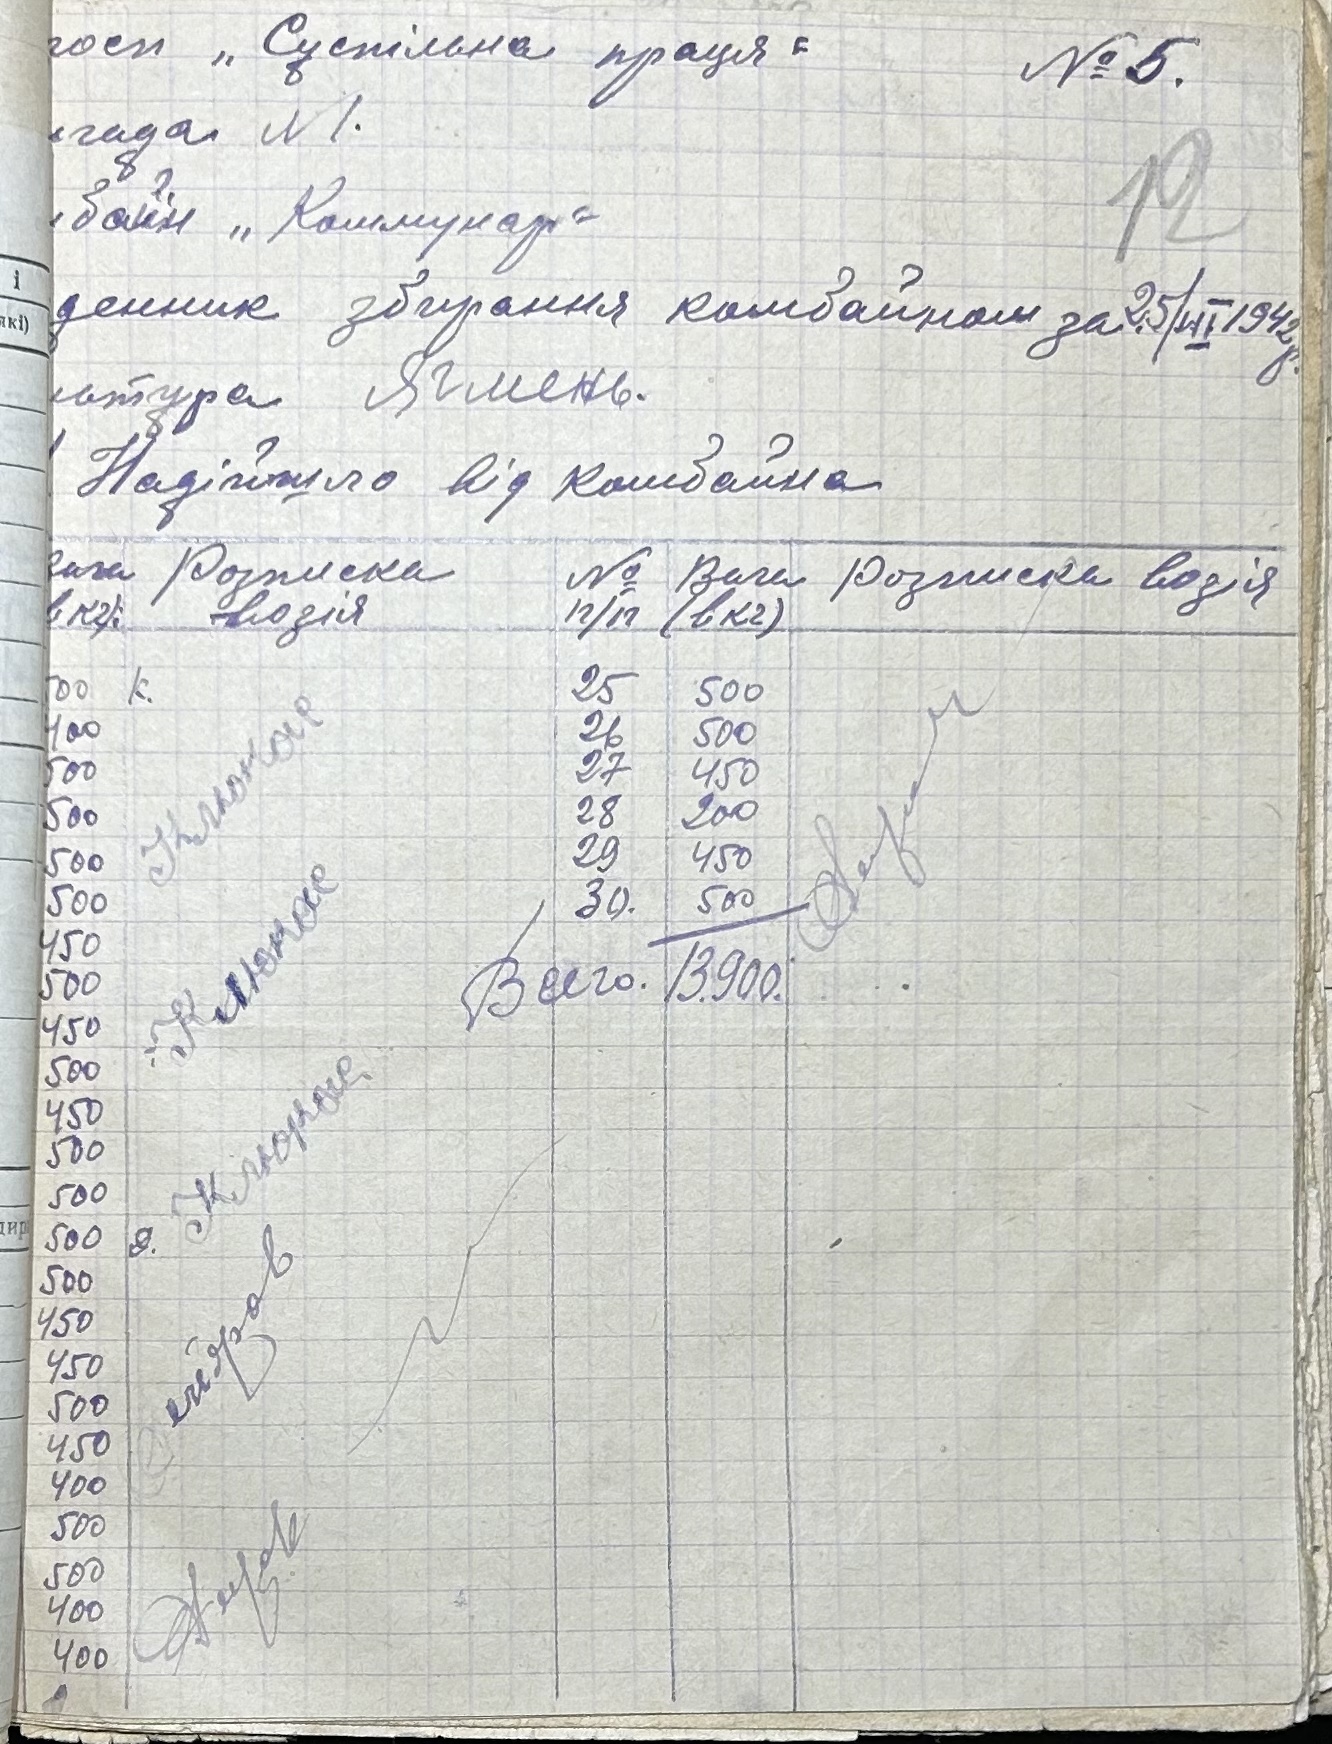 госп „Суспільна праця" № 5.
12
игада № 1.
мбайн „Коммунар"
денник збирання комбайном за 25/VII 1942 р.
льтура Ячмень.
Надійшло від комбайна
Вага Розписка № Вага Розписка возія
в кг): возія п/п (в кг)
500 к. 25 500
400 26 500
500 27 450
500 28 200
500 29 450
500 30. 500
450
500 Всего. 13.900.
450
500
450
500
500
500 я.
500
450
450
500
450
400
500
500
400
400
Клюкас
Клюкас
Клюкас
і
які)
дир